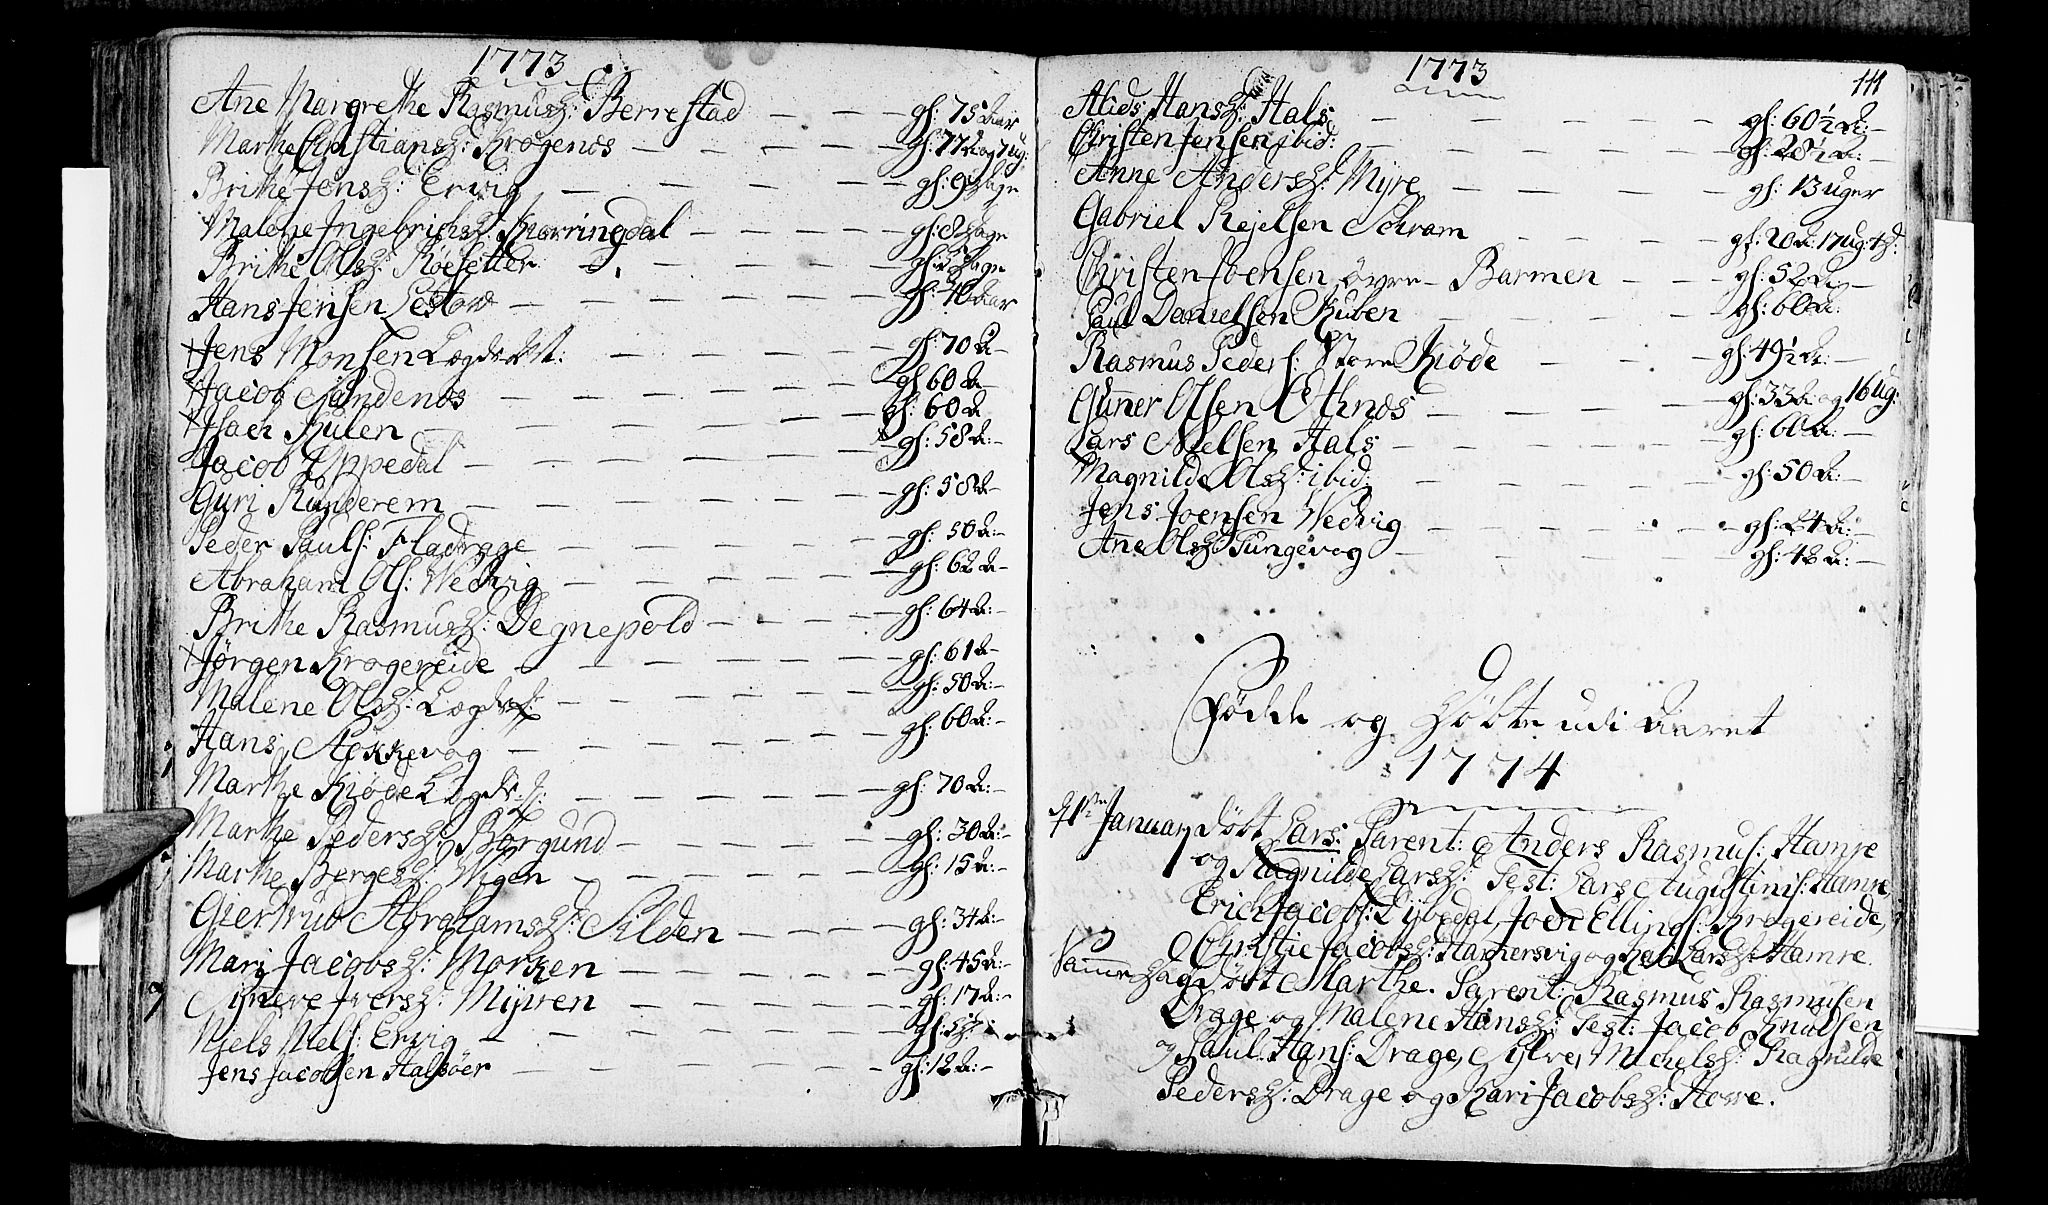 1773
Ane Margrethe Rasmusd: Berrestad — — — gl: 75 Aar
Marthe Christiansd: Krogenæs — — — gl: 77 A: og 7 ug:
Brithe Jensd: Ervig — — — gl: 9 Dage
Malene Ingebrichsd: — — — gl: 8 Dage
Brithe Olsd: Røesetter — — — Dage
Hans Jensen — — — gl: 70 Aar
Jens Monsen Lægds L: — — — gl: 70 A:
Jacob Sandenæs — — — gl: 60 A:
Isach Hulen — — — gl: 60 A:
Jacob Oppedal — — — gl: 58 A:
Guri Runderem — — — gl: 58 A:
Peder Pauls: Fladrage — — — gl: 50 A:
Abraham Ols: Wedvig — — — gl: 62 A:
Brithe Rasmusd: Degnepold — — — gl: 64 A:
Jørgen Krogereide — — — gl: 61 A:
Malene Olsd: Lægds L: — — — gl: 50 A:
Hans Nekkevog — — — gl: 60 A:
Marthe Kiøde Lægds L: — — — gl: 70 A:
Marthe Pedersd: Borgund — — — gl: 30 A:
Marthe Bergesd: Wigen — — — gl: 15 A:
Giertrud Abrahamsd: Silden — — — gl: 34 A:
Mari Jacobsd: Morken — — — gl: 45 A:
Synneve Iversd: Myren — — — gl: 17 A:
Niels Niels: Ervig — — — gl: 5 D:
Jens Jacobsen Halsøer — — — gl: 12 A:
1773
111
Alids Hansd: Hals — — — gl: 60½ A:
Christen Jensen ibid: — — — gl: 28½ A:
Anne Andersd: Myre — — — gl: 13 uger
Gabriel Rejelsen Schram — — — gl: 20 A: 17 ug: 4 D:
Christen Joensen øvre Barmen — — — gl: 52 A:
Paul Danielsen Kuben — — — gl: 60 A:
Rasmus Peders: Store Kiøde — — — gl: 49½ A:
Guner Olsen Othnæs — — — gl: 33 A: og 16 ug:
Lars Nielsen Hals — — — gl: 60 A:
Magnilde Olsd: ibid: — — — gl: 50 A:
Jens Joensen Wedvig — — — gl: 24 A:
Ane Olsd: Tungevog — — — gl: 48 A:
Fødde og Døbte udi Aaret
1774
d. 1ste January døbt Lars: Parent: Anders Rasmus: Hamre
og Ragnilde Larsd: Test: Lars Augustinis: Hamre,
Erich Jacobs: Dybedal, Joen Ellings: Krogereide,
Christie Jacobsd: Hamersvig og Larsd: Hamre.
Samme Dag døbt Marthe. Parent: Rasmus Rasmusen
Drage og Malene Hansd: Test: Jacob Knudsen
og Paul Hans: Drage, Sylve, Michelsd: Ragnilde
Pedersd: Drage og Kari Jacobsd: Hove.